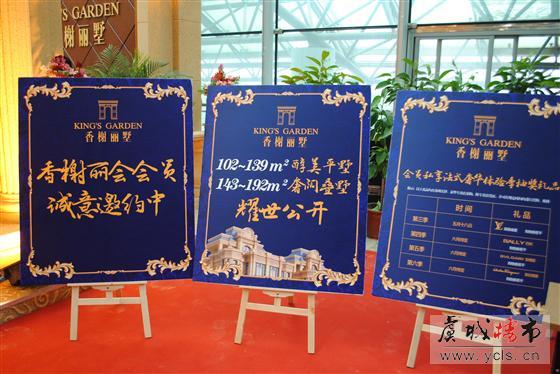 S GARDEN
榭丽墅
KING'S GARDEN
香榭丽墅
香榭丽会会员
诚意邀约中
KING'S GARDEN
香榭丽墅
102~139m² 醇美平墅
143~192m² 奢阔叠墅
耀世公开
KING'S GARDEN
香榭丽墅
会员私享法式奢华体验季抽奖礼品
时间 礼品
第三季 五月十八日
第四季 六月待定 BALLY
第五季 六月待定
第六季 六月待定
虞城楼市
www.ycls.cn